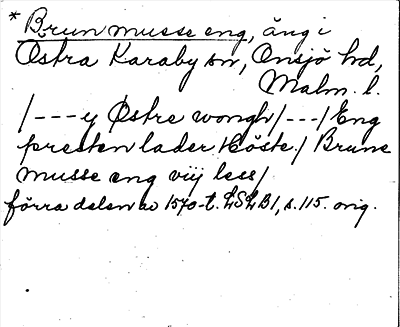 * Brun musse eng, äng i
Östra Karaby sn, Onsjö hd,
Malm. l.
/---y Östre wongh/---/Eng
presten lader Höste./ Brune
musse eng viij less/
förra delen av 1570-t. LSLB1, s. 115. orig.